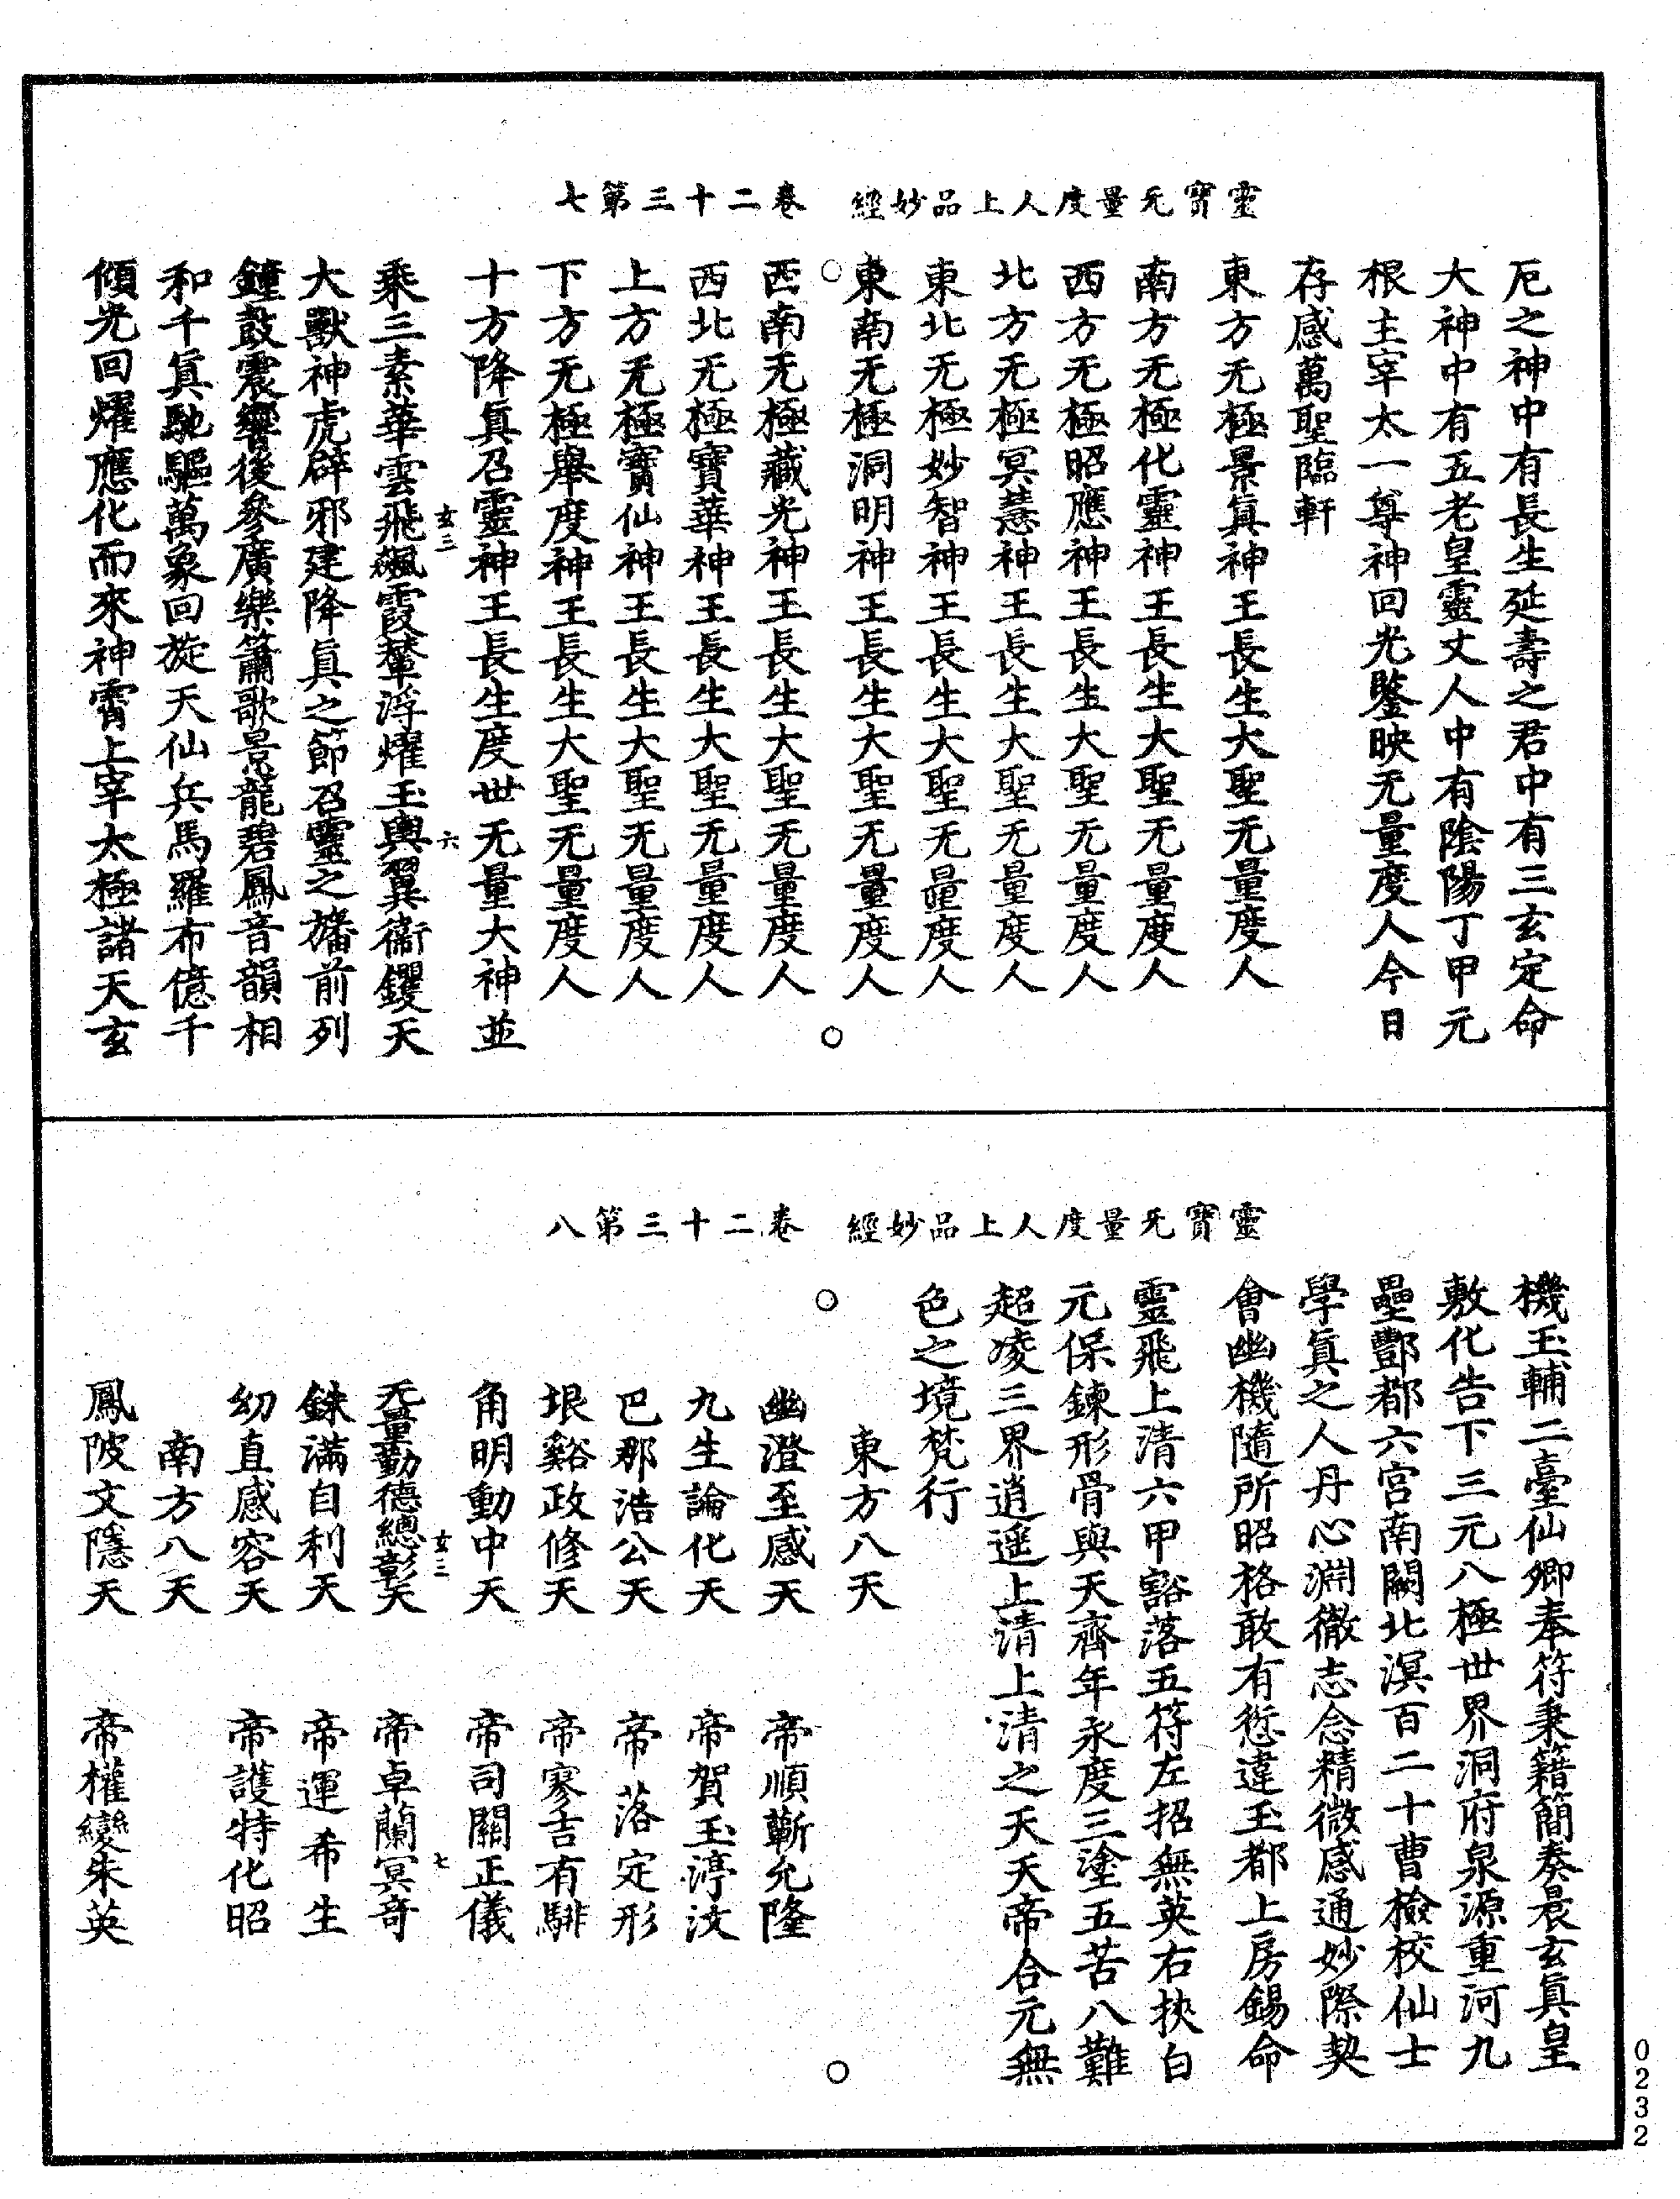 靈寶无量度人上品妙經　卷二十三第七
厄之神中有長生延壽之君中有三玄定命
大神中有五老皇靈丈人中有陰陽丁甲元
根主宰太一尊神回光鑒映无量度人今日
存感萬聖臨軒
東方无極景眞神王長生大聖无量度人
南方无極化靈神王長生大聖无量度人
西方无極昭應神王長生大聖无量度人
北方无極冥慧神王長生大聖无量度人
東北无極妙智神王長生大聖无量度人
東南无極洞明神王長生大聖无量度人
西南无極藏光神王長生大聖无量度人
西北无極寶華神王長生大聖无量度人
上方无極寶仙神王長生大聖无量度人
下方无極舉度神王長生大聖无量度人
十方降眞召靈神王長生度世无量大神並
玄三　六
乘三素華雲飛飈霞輦浮燿玉輿翼衞鑺天
大獸神虎辟邪建降眞之節召靈之旛前列
鐘鼓震響後參廣樂簫歌景龍碧鳳音韻相
和千眞馳驅萬象回旋天仙兵馬羅布億千
傾光回燿應化而來神霄上宰太極諸天玄
靈寶无量度人上品妙經　卷二十三第八
機玉輔二臺仙卿奉符秉籍簡奏晨玄眞皇
敷化告下三元八極世界洞府泉源重河九
壘酆都六宮南闕北溟百二十曹檢校仙士
學眞之人丹心淵徹志念精微感通妙際契
會幽機隨所昭格敢有愆違玉都上房錫命
靈飛上清六甲豁落五符左招無英右挾白
元保鍊形骨與天齊年永度三塗五苦八難
超凌三界逍遙上清上清之天天帝合元無
色之境梵行
東方八天
幽澄至感天　帝順蘄允隆
九生論化天　帝賀玉渟汶
巴那浩公天　帝落定形
垠谿政修天　帝寥吉有騑
角明動中天　帝司關正儀
玄三　七
无量勳德總彰天　帝卓蘭冥奇
銖滿自利天　帝運希生
幼直感容天　帝護特化昭
南方八天
鳳陂文隱天　帝權變朱英
0232